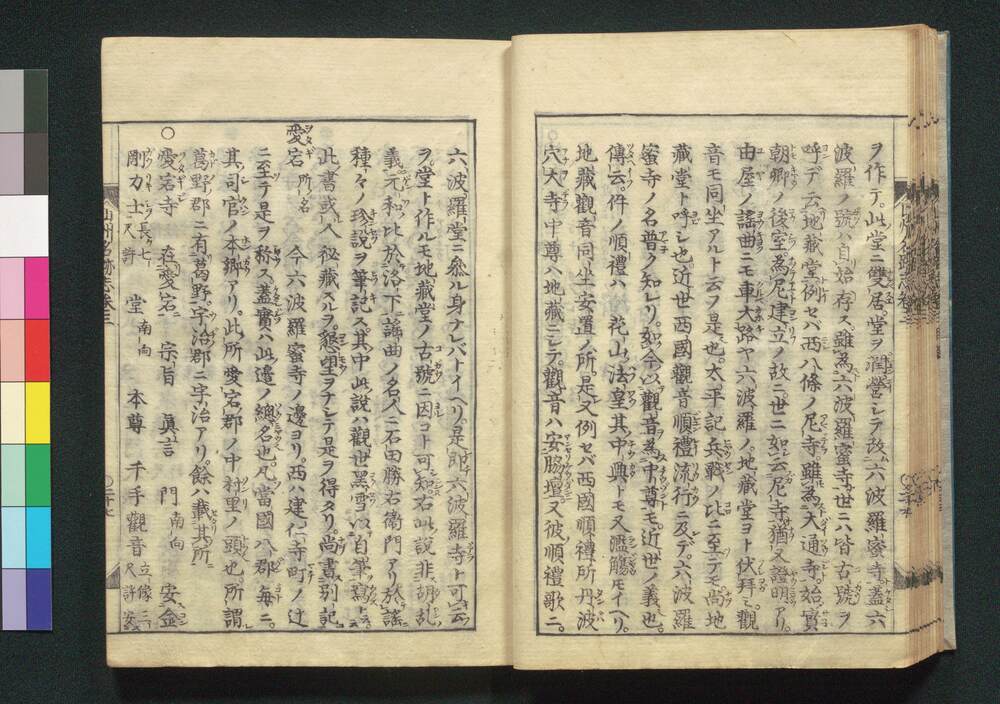 ヲ作テ。此堂ニ雙居。堂ヲ潤營シテ改ム六波羅蜜寺ト蓋六
波羅ノ號ハ自始存ス雖為六波羅蜜寺世ニハ皆古號ヲ
呼デ云地藏堂。例セバ西八條ノ尼寺。雖為大通寺。始實
朝卿ノ後室為尼建立ノ故ニ。世ニ如云尼寺猶又證明アリ。
由屋ノ謠曲ニモ車大路ヤ六波羅ノ。地藏堂ヨト伏拜ミ。觀
音モ同坐アルト云フ是也。太平記兵戰ノ比ニ至テモ尚地
藏堂ト呼シ也近世西國觀音順禮流行ニ及デ。六波羅
蜜寺ノ名普ク知レリ。如今以觀音為中尊モ。近世ノ義也。
傳云。件ノ順禮ハ 花山法皇其中興トモ又濫觴モイヘリ。
地藏觀音同坐安置ノ所。是又例セバ西國順禮所丹波
穴大寺中尊ハ地藏ニシテ。觀音ハ安脇壇又彼順禮歌ニ。
六波羅堂ニ參ル身ナレバトイヘリ。是即六波羅寺ト可云
ヲ。堂ト作ルモ地藏堂ノ古號ニ因コト可知。右此說非胡乱
義。元和ノ比於洛下謠曲ノ名人ニ石田勝右衛門アリ於謠
種々ノ珍說ヲ筆記ス。其中此說ハ觀世黑雪以自筆寫ト云
此書或人秘藏スルヲ。懇望ヲナシテ是ヲ得タリ。尚書別記
愛宕 所ノ名 今六波羅蜜寺ノ邊ヨリ。西ハ建仁寺町ノ辻
ニ至テ是ヲ称ス蓋實ハ此邊ノ總名也。凡當國八郡每ニ。
其司官ノ本郷アリ。此所愛宕郡ノ中村里ノ頭也。所謂
葛野郡ニ有葛野。宇治郡ニ宇治アリ。餘ハ載其所ニ
○愛宕寺 在愛宕。 宗旨 眞言 門 南向 安金
剛力士 長七尺許 堂 南向 本尊 千手觀音 立像二尺許安